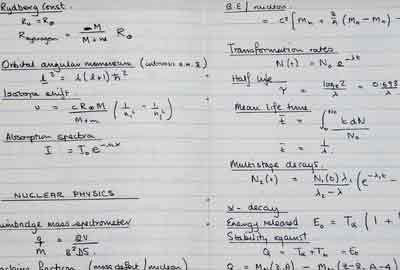 Rydberg Const.
R∞ = R∞
R_hydrogen = M / (M+m) R∞
Orbital angular momentum (intrinsic a.m. S)
L² = l(l+1)ħ²
Isotope shift.
ν = cR∞M / (M+m) (1/n₁² - 1/n₂²)
Absorption spectra
I = I₀e
NUCLEAR PHYSICS
Bainbridge mass spectrometer
q/M = 2V / B²DS.
fraction (mass defect / nucleon)
B.E / nucleon
= c² [Mn + (Mn - Mn) -
Transformation rates
N(t) = N₀ e^-λt
Half life
τ = loge2 / λ = 0.693
Mean life time
t̄ = ∫ t dN / N₀
t̄ = 1/λ
Multistage decays.
N₂(t) = N₁(0)λ₁ / (λ₂ - λ) (e^-λ₁t -
α - decay
Energy released E₀ = Tα (1 +
Stability against
Q = Tα + Tb = E₀
Q = (Z,A) - (Z-2, A-4)